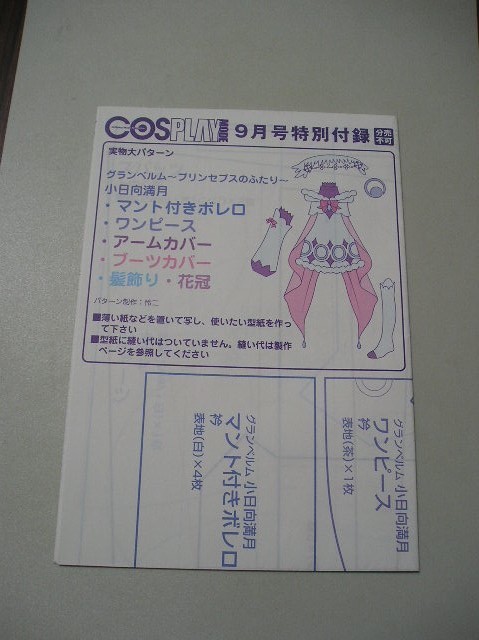 COSPLAY MODE 9月号特別付録 分売不可
実物大パターン
グランベルム〜プリンセプスのふたり〜
小日向満月
・マント付きボレロ
・ワンピース
・アームカバー
・ブーツカバー
・髪飾り・花冠
パターン制作：怜こ
■薄い紙などを置いて写し、使いたい型紙を作っ
て下さい
■型紙に縫い代はついていません。縫い代は製作
ページを参照してください
グランベルム 小日向満月
ワンピース
衿
表地(茶)×1枚
グランベルム 小日向満月
マント付きボレロ
衿
表地(白)×4枚